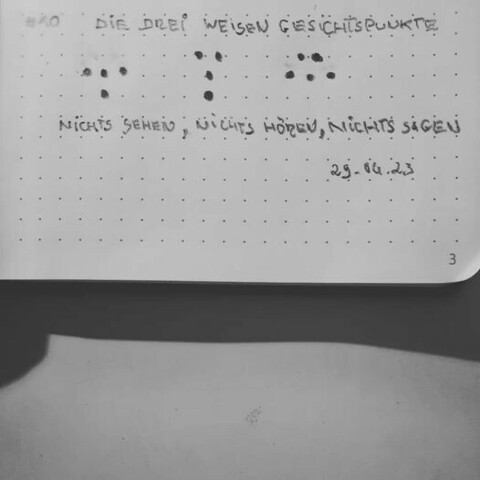 DIE DREI WEISEN GESICHTSPUNKTE
NICHTS SEHEN, NICHTS HÖREN, NICHTS SAGEN
29.04.23
3